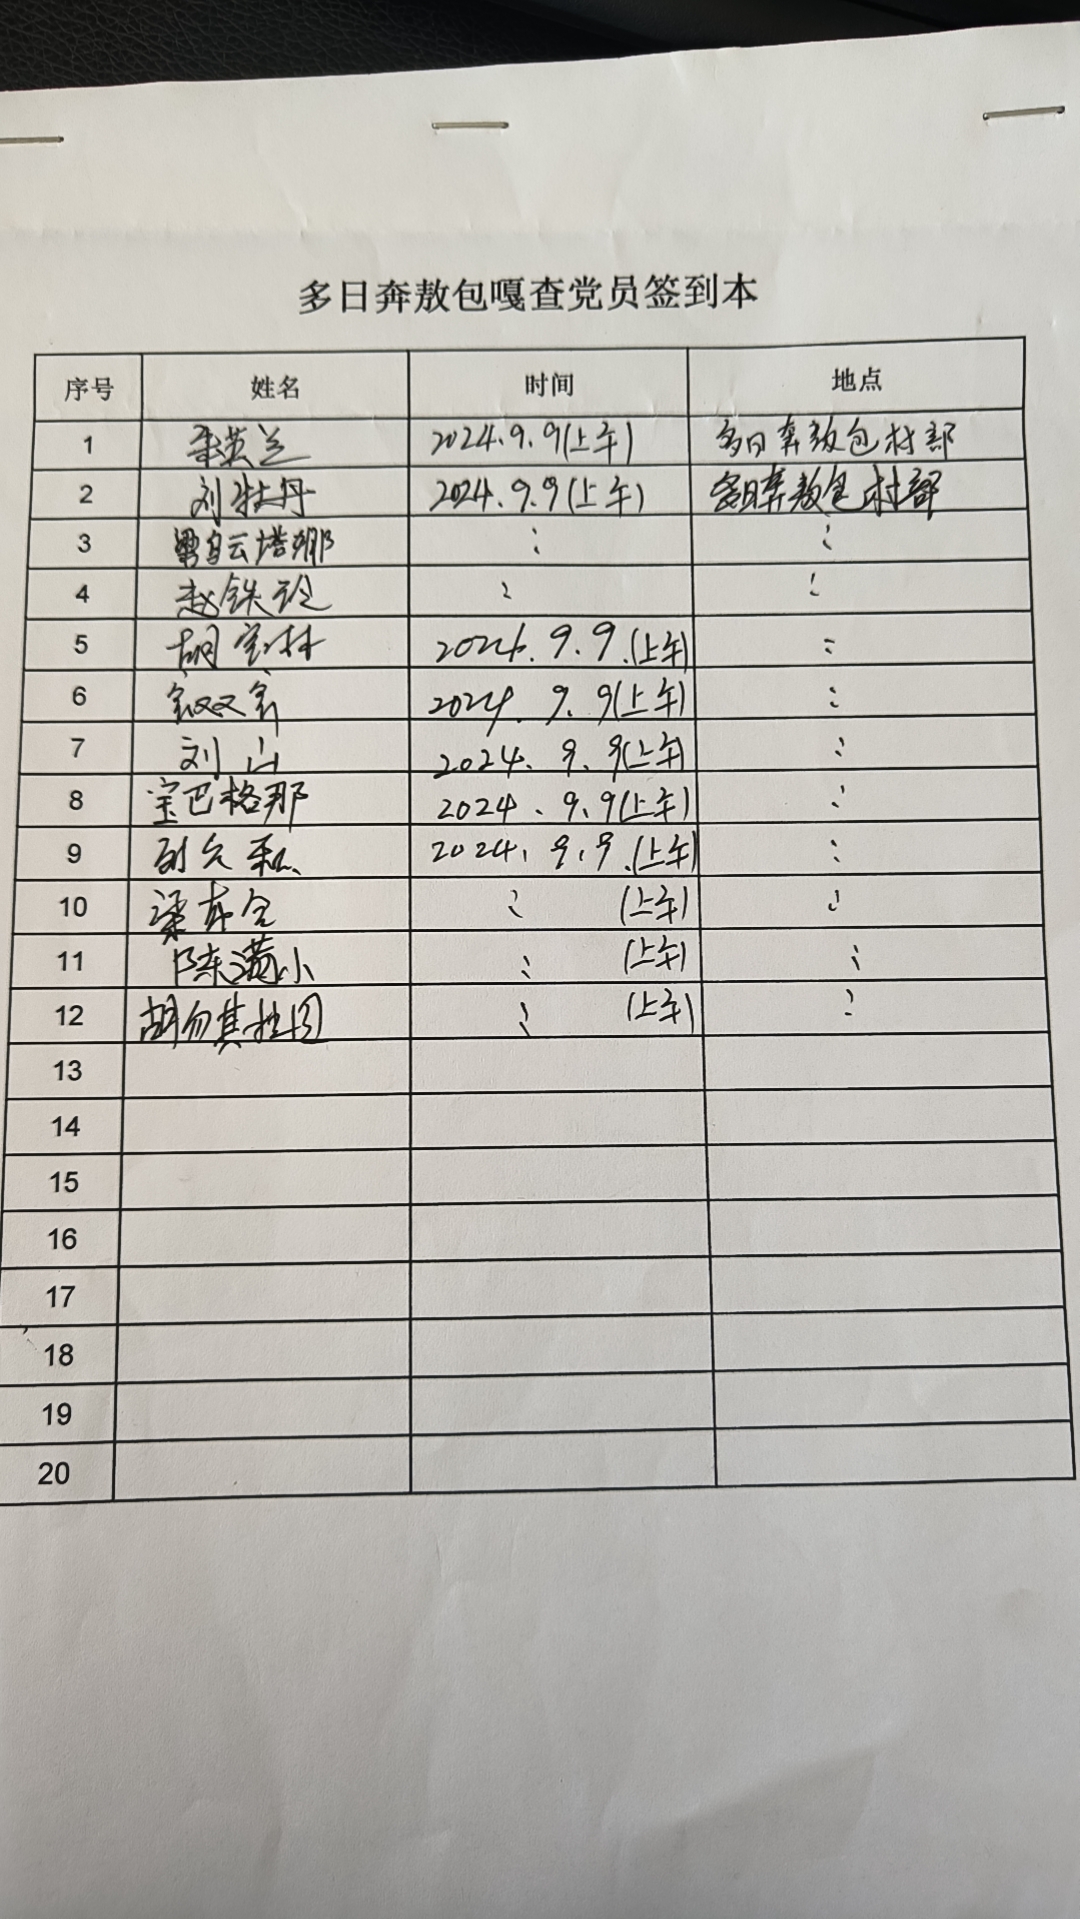 多日奔敖包嘎查党员签到本
序号 姓名 时间 地点
1 英兰 2024.9.9(上午) 多日奔敖包村部
2 刘牡丹 2024.9.9(上午) 多日奔敖包村部
3 乌云塔娜 : :
4 赵铁 : :
5 胡宝林 2024.9.9.(上午) :
6 2024.9.9(上午) :
7 刘山 2024.9.9(上午) :
8 宝巴格那 2024.9.9(上午) :
9 2024.9.9.(上午) :
10 梁 : (上午) :
11 陈满小 : (上午) :
12 胡 其 图 : (上午) :
13
14
15
16
17
18
19
20